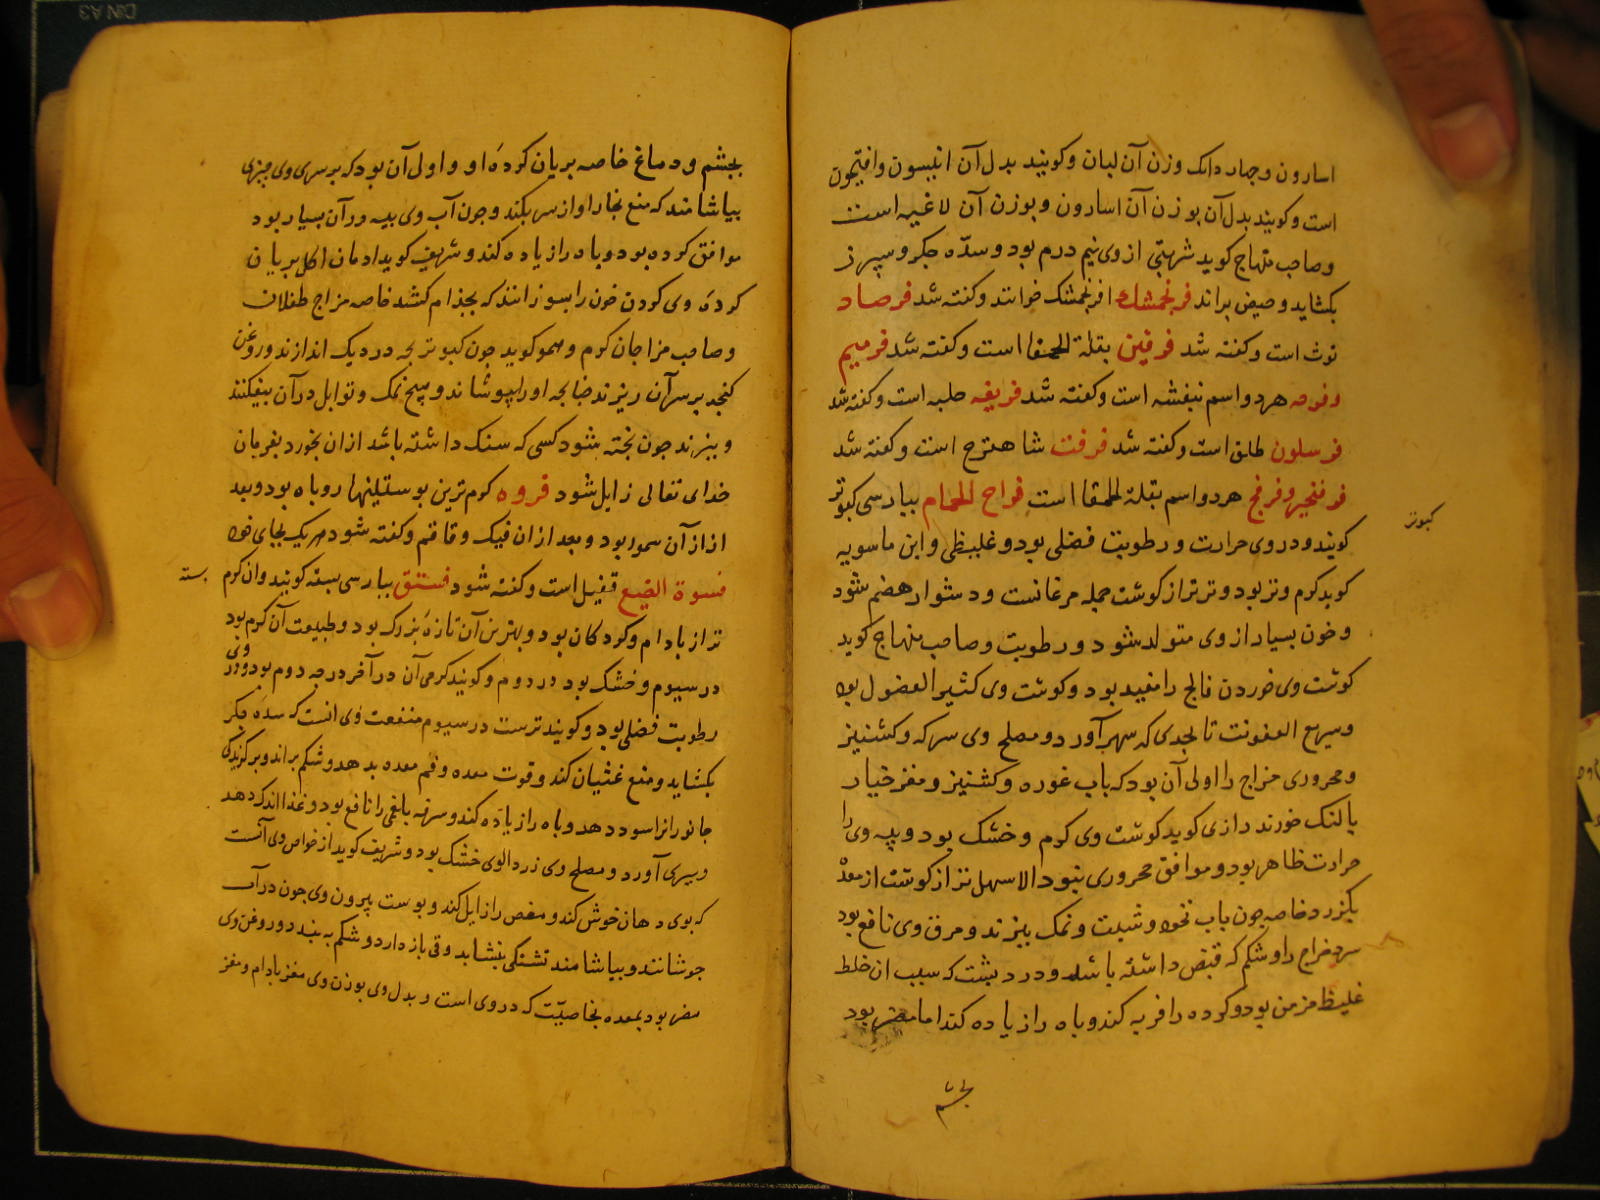 اسارون و چهار دانک وزن آن لبان و کویند بدل آن انیسون و افتیمون
است و کویند بدل آن بوزن آن اسارون و بوزن آن لاغیه است
و صاحب منهاج کوید شربتی ازوی نیم درم بود و سدّه جکر و سپرز
بکشاید و حیض براند فرنجمشک افرنجمشک خوانند و کفته شد فرصاد
توث است و کفته شد فرفین بقلة الحمقا است و کفته شد فرمیم
و فرمه هردو اسم بنفشه است و کفته شد فریقه حلبه است و کفته شد
فرسلون طلق است و کفته شد فرفت شاهترج است و کفته شد
فرفخیر و فرفخ هردو اسم بقلة الحمقا است فراخ الحمام بپارسی کبوتر
کبوتر
کویند و در وی حرارت و رطوبت فضلی بود و غلیظی و ابن ماسویه
کوید کرم و تر بود و تر تر از کوشت جمله مرغانست و دشوار هضم شود
و خون بسیار از وی متولد شود و رطوبت و صاحب منهاج کوید
کوشت وی خوردن فالج را مفید بود و کوشت وی کثیر الفضول بود
و سریع العفونت تا بحدی که سهر آورد و مصلح وی سرکه و کشنیز
و محروری مزاج را اولی آن بود که باب غوره و کشنیز و مغز خیار
بالنک خورند رازی کوید کوشت وی کرم و خشک بود و پیه وی را
حرارت ظاهر بود و موافق محروری نبود الا سهل تر از کوشت از معده
بکزرد خاصه چون باب نخود و شبت و نمک بپزند و مرق وی نافع بود
سرد مزاج را و شکم که قبض داشته باشد و درد پشت که سبب آن خلط
غلیظ مزمن بود و کرده را فربه کند و باه را زیاده کند اما مضر بود
بچشم
بچشم و دماغ خاصه بریان کردهٔ او و اول آن بود که بر سری وی چیزی
بیاشامند که منع بخار او از سر بکند و چون آب وی بپیه در آن بسیار بود
موافق کرده بود و باه را زیاده کند و شریف کوید ادمان اکل بریان
کرده وی کردن خون را بسوزانند که بجذام کشد خاصه مزاج طفلان
و صاحب مزاجان کرم و همو کوید چون کبوتر بچه در دیک اندازند و روغن
کنجد بر سر آن ریزند چنانچه اورا بپوشاند و هیچ نمک و توابل در آن نیفکنند
و بپزند چون پخته شود کسی که سنک داشته باشد از آن بخورد بفرمان
خدای تعالی زایل شود فروه کرم ترین پوستینها روباه بود و بعد
ازان آن سمور بود و بعد ازان فنک و قاقم و کفته شود هریک بجای خود
فسوة الضبع قفیل است و کفته شود فستق بپارسی پسته کویند و آن کرم
پسته
تر از بادام و کردکان بود و بهترین آن تازهٔ بزرک بود و طبیعت آن کرم بود
در سیوم و خشک بود در دوم و کویند کرمی آن در آخر درجه دوم بود و در وی
رطوبت فضلی بود و کویند ترست در سیوم منفعت وی آنست که سده جکر
بکشاید و منع غثیان کند و قوت معده و فم معده بدهد و شکم براند و بر کزیدکی
جانورانرا سود دهد و باه را زیاده کند و سرفه بلغمی را نافع بود و غذا اندک دهد
و بیری آورد و مصلح وی زردالوی خشک بود و شریف کوید از خواص وی آنست
که بوی دهان خوش کند و مغص را زایل کند و پوست بیرون وی چون در آب
جوشانند و بیاشامند تشنکی بنشاند و قی باز دارد و شکم به بندد و روغن وی
مضر بود بمعده بخاصیّت که در وی است و بدل وی بوزن وی مغز بادام و مغز